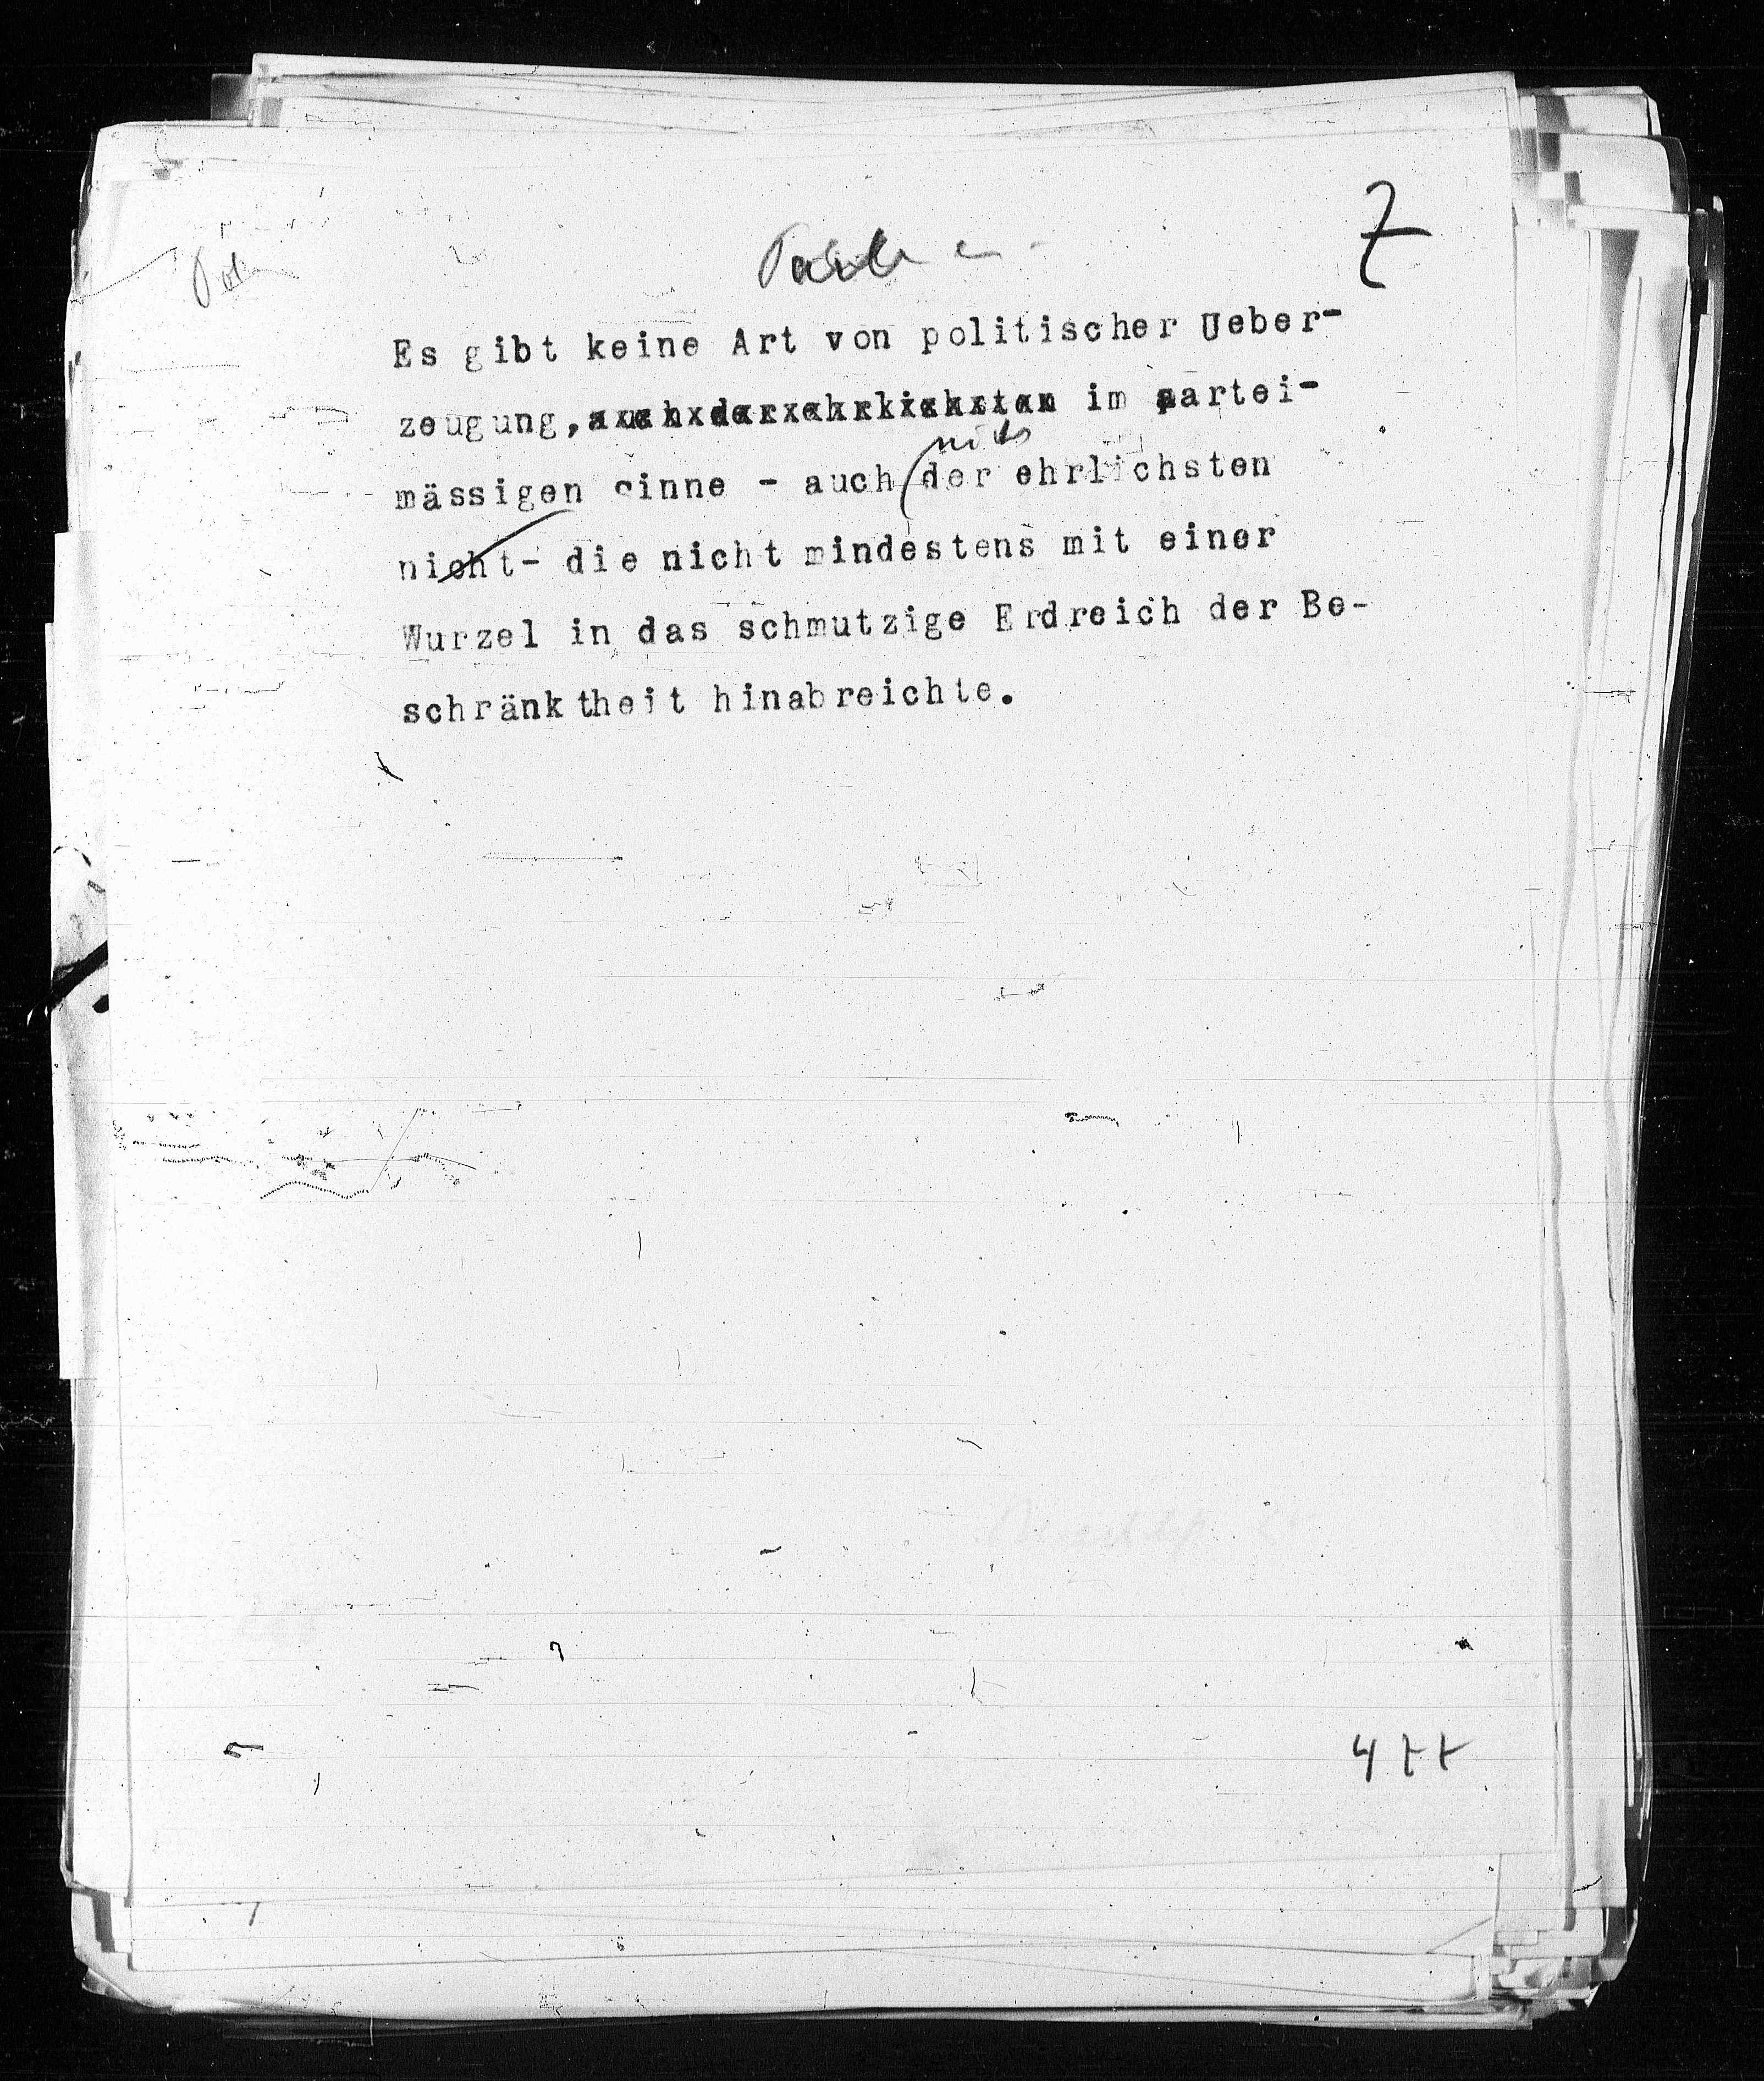 7
Es gibt keine Art von politischer Ueber-
zeugung, auch der ehrlichsten im partei-
nicht
mässigen Sinne - auch der ehrlichsten
nicht- die nicht mindestens mit einer
Wurzel in das schmutzige Erdreich der Be-
schränktheit hinabreichte.
477